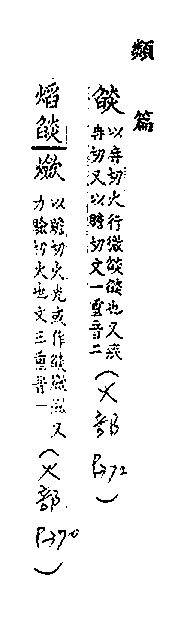 類篇
燄 以冉切火行微燄燄也又疾
冉切又以贍切文一重音二(火部
焰 以贍切火光或作 又
力驗切火也文三重音一(火部